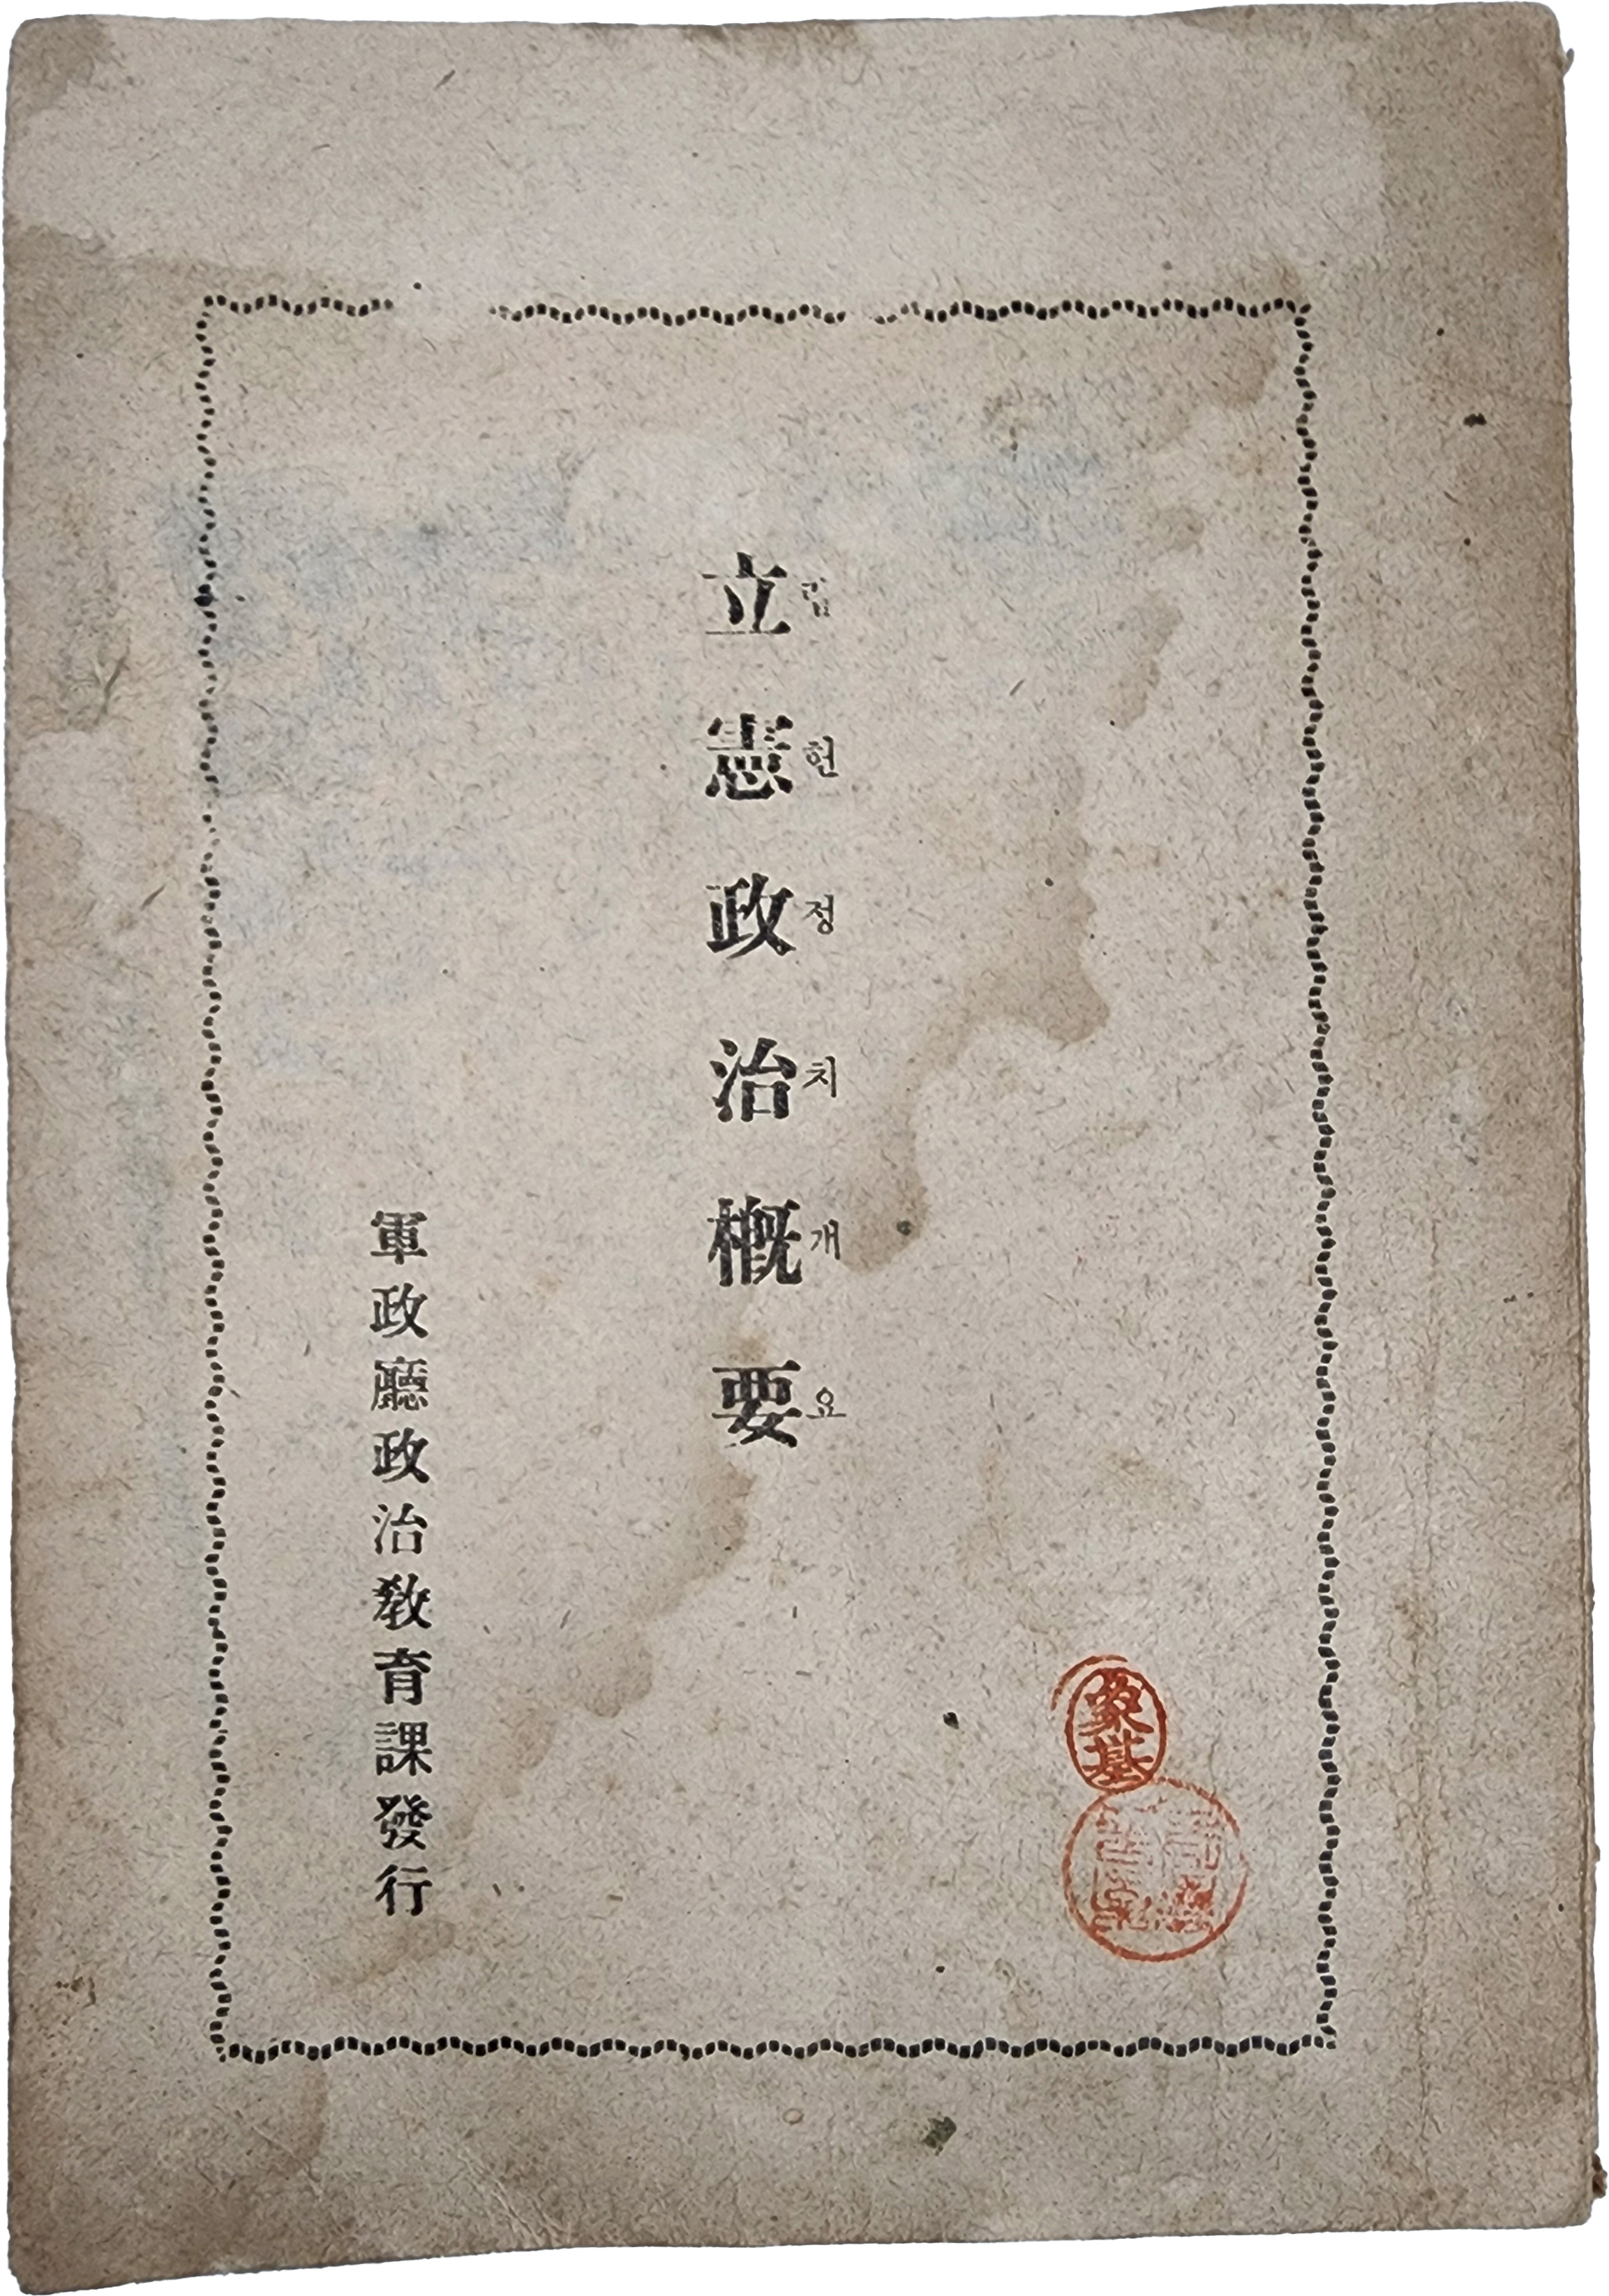 立憲政治概要
립헌정치개요
軍政廳政治敎育課發行
象基